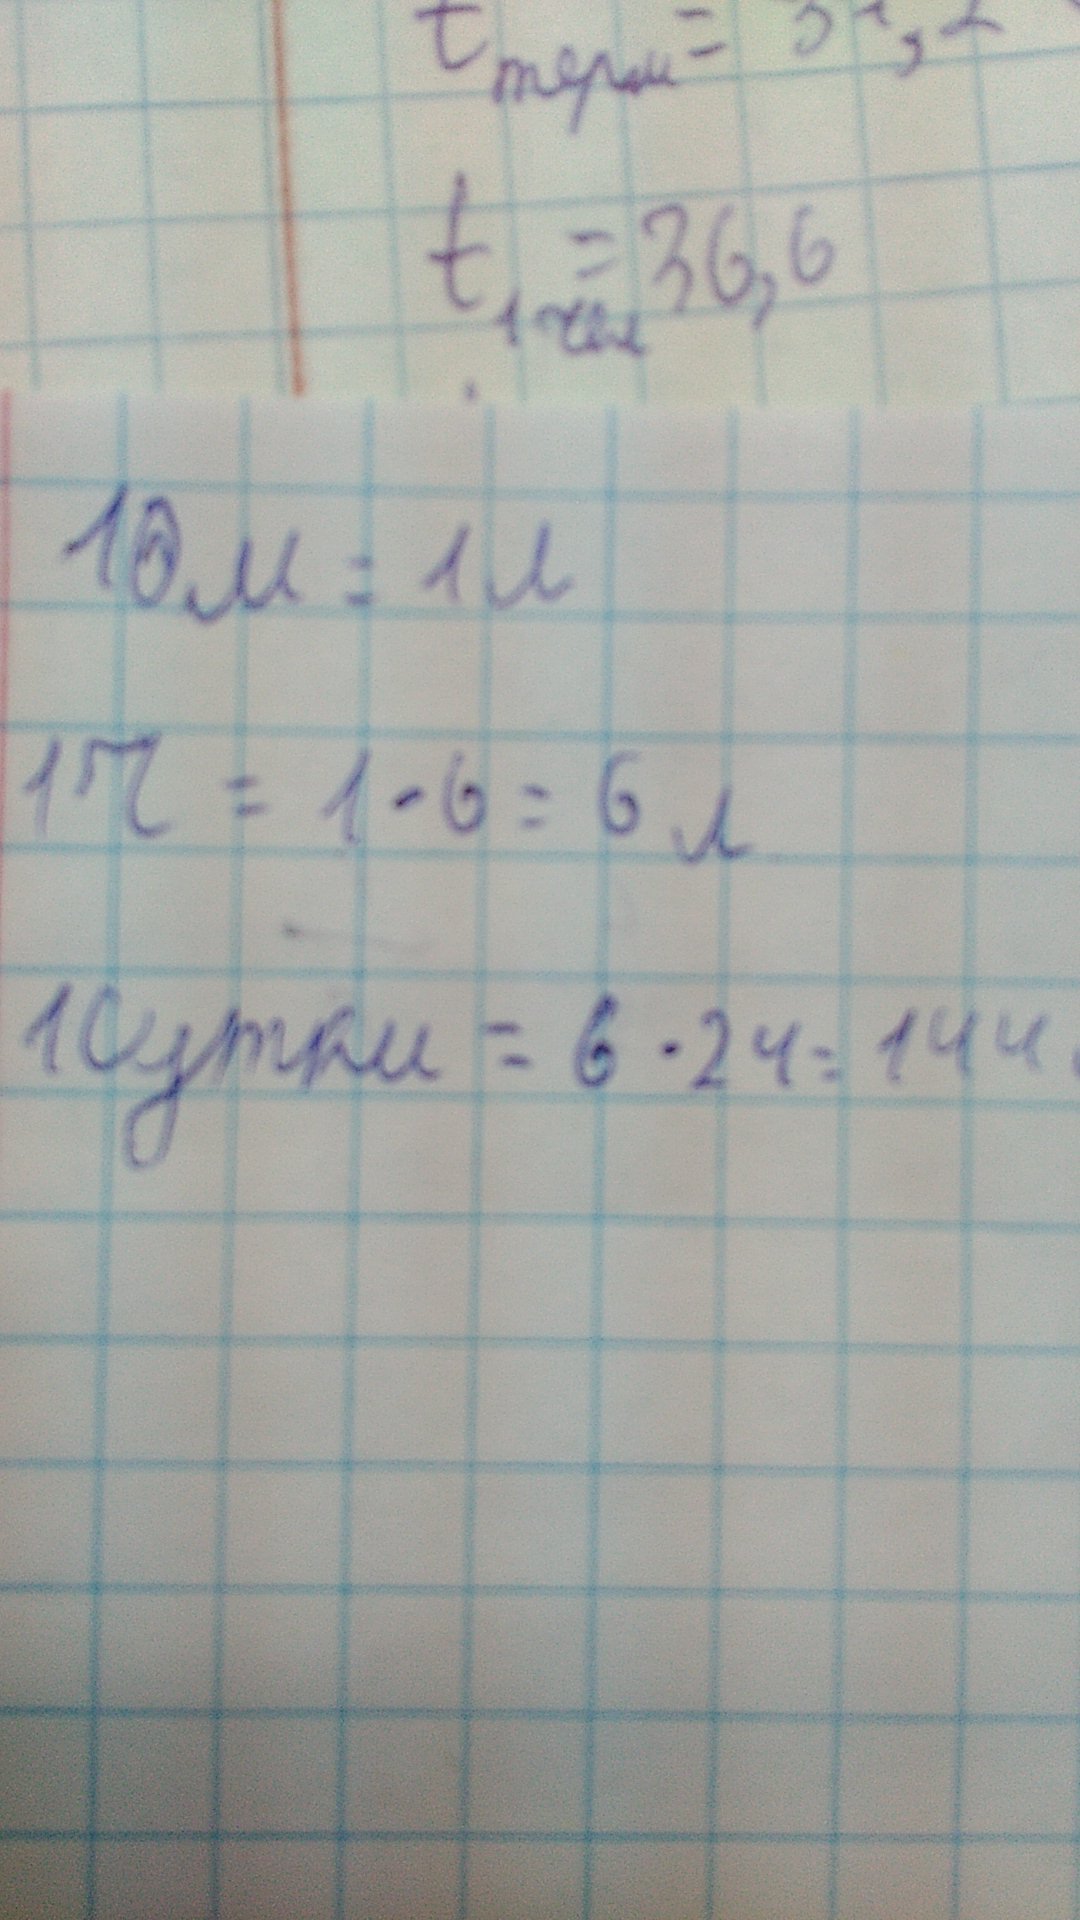 t терм =
t 1 чел = 36,6
10 м = 1 л
1 ч = 1 · 6 = 6 л
1 Сутки = 6 · 24 = 144